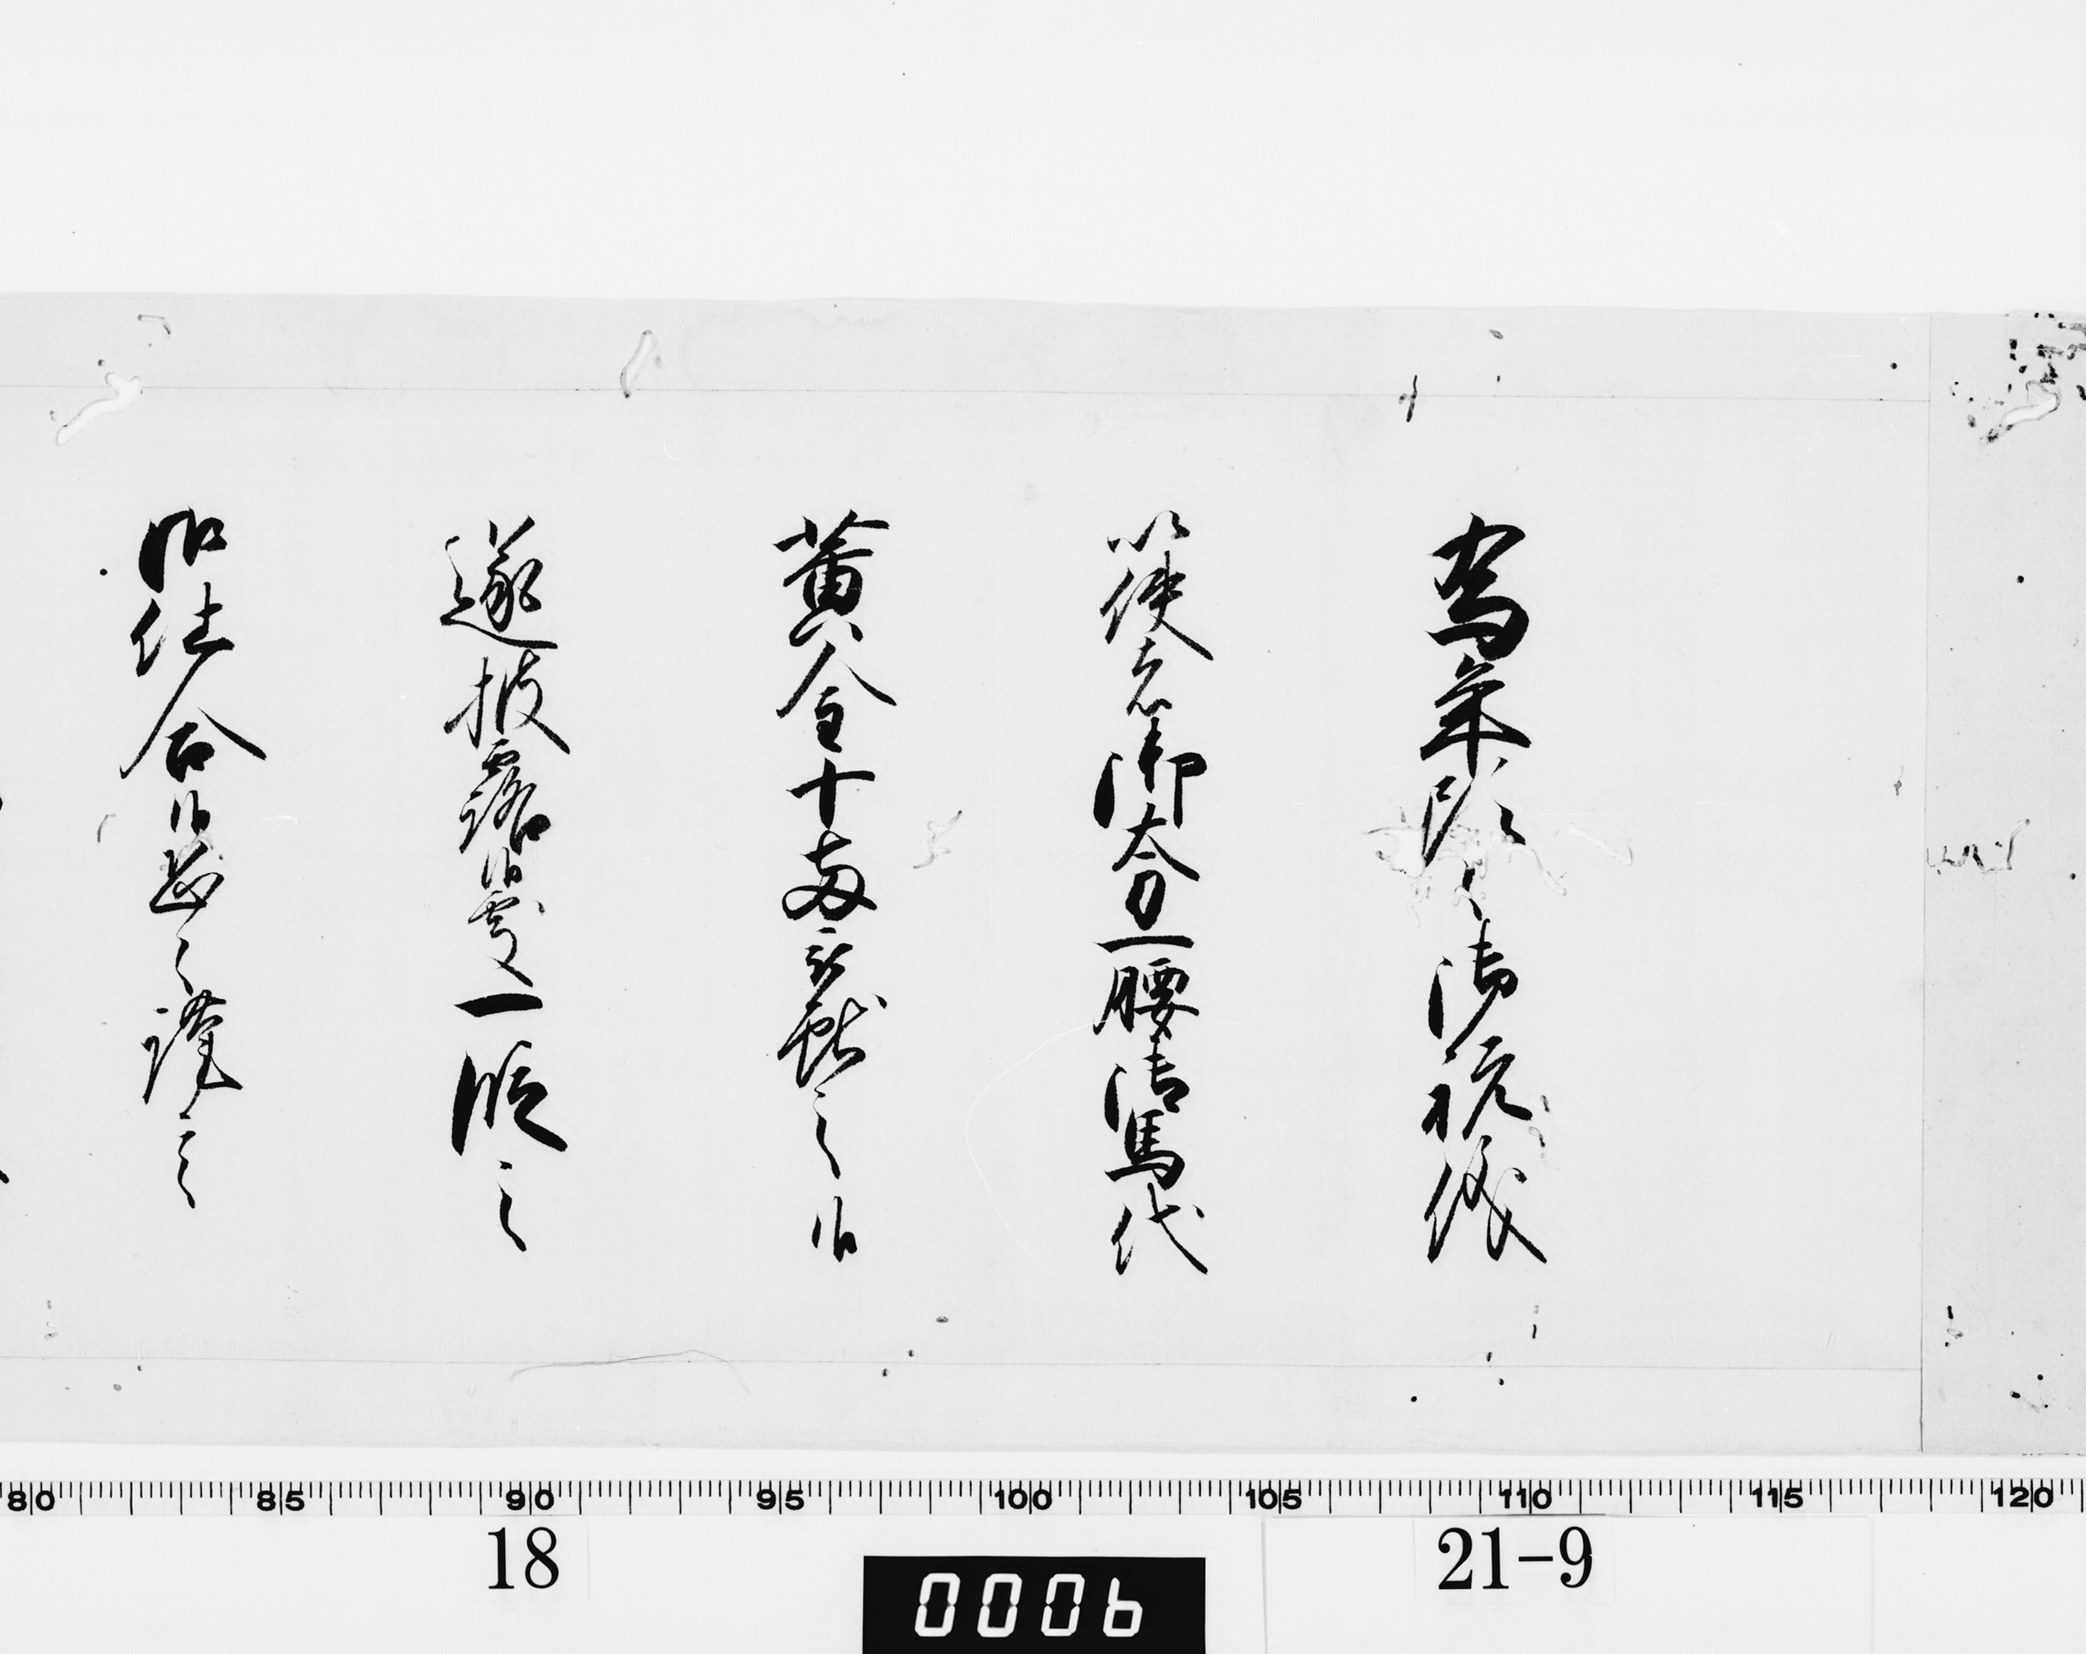 為年頭之御祝儀
以使者御太刀一腰御馬代
黄金十両被献之候
遂披露候処一段之
御仕合候恐々謹言
80 85 90 95 100 105 110 115 120
18
0006
21-9